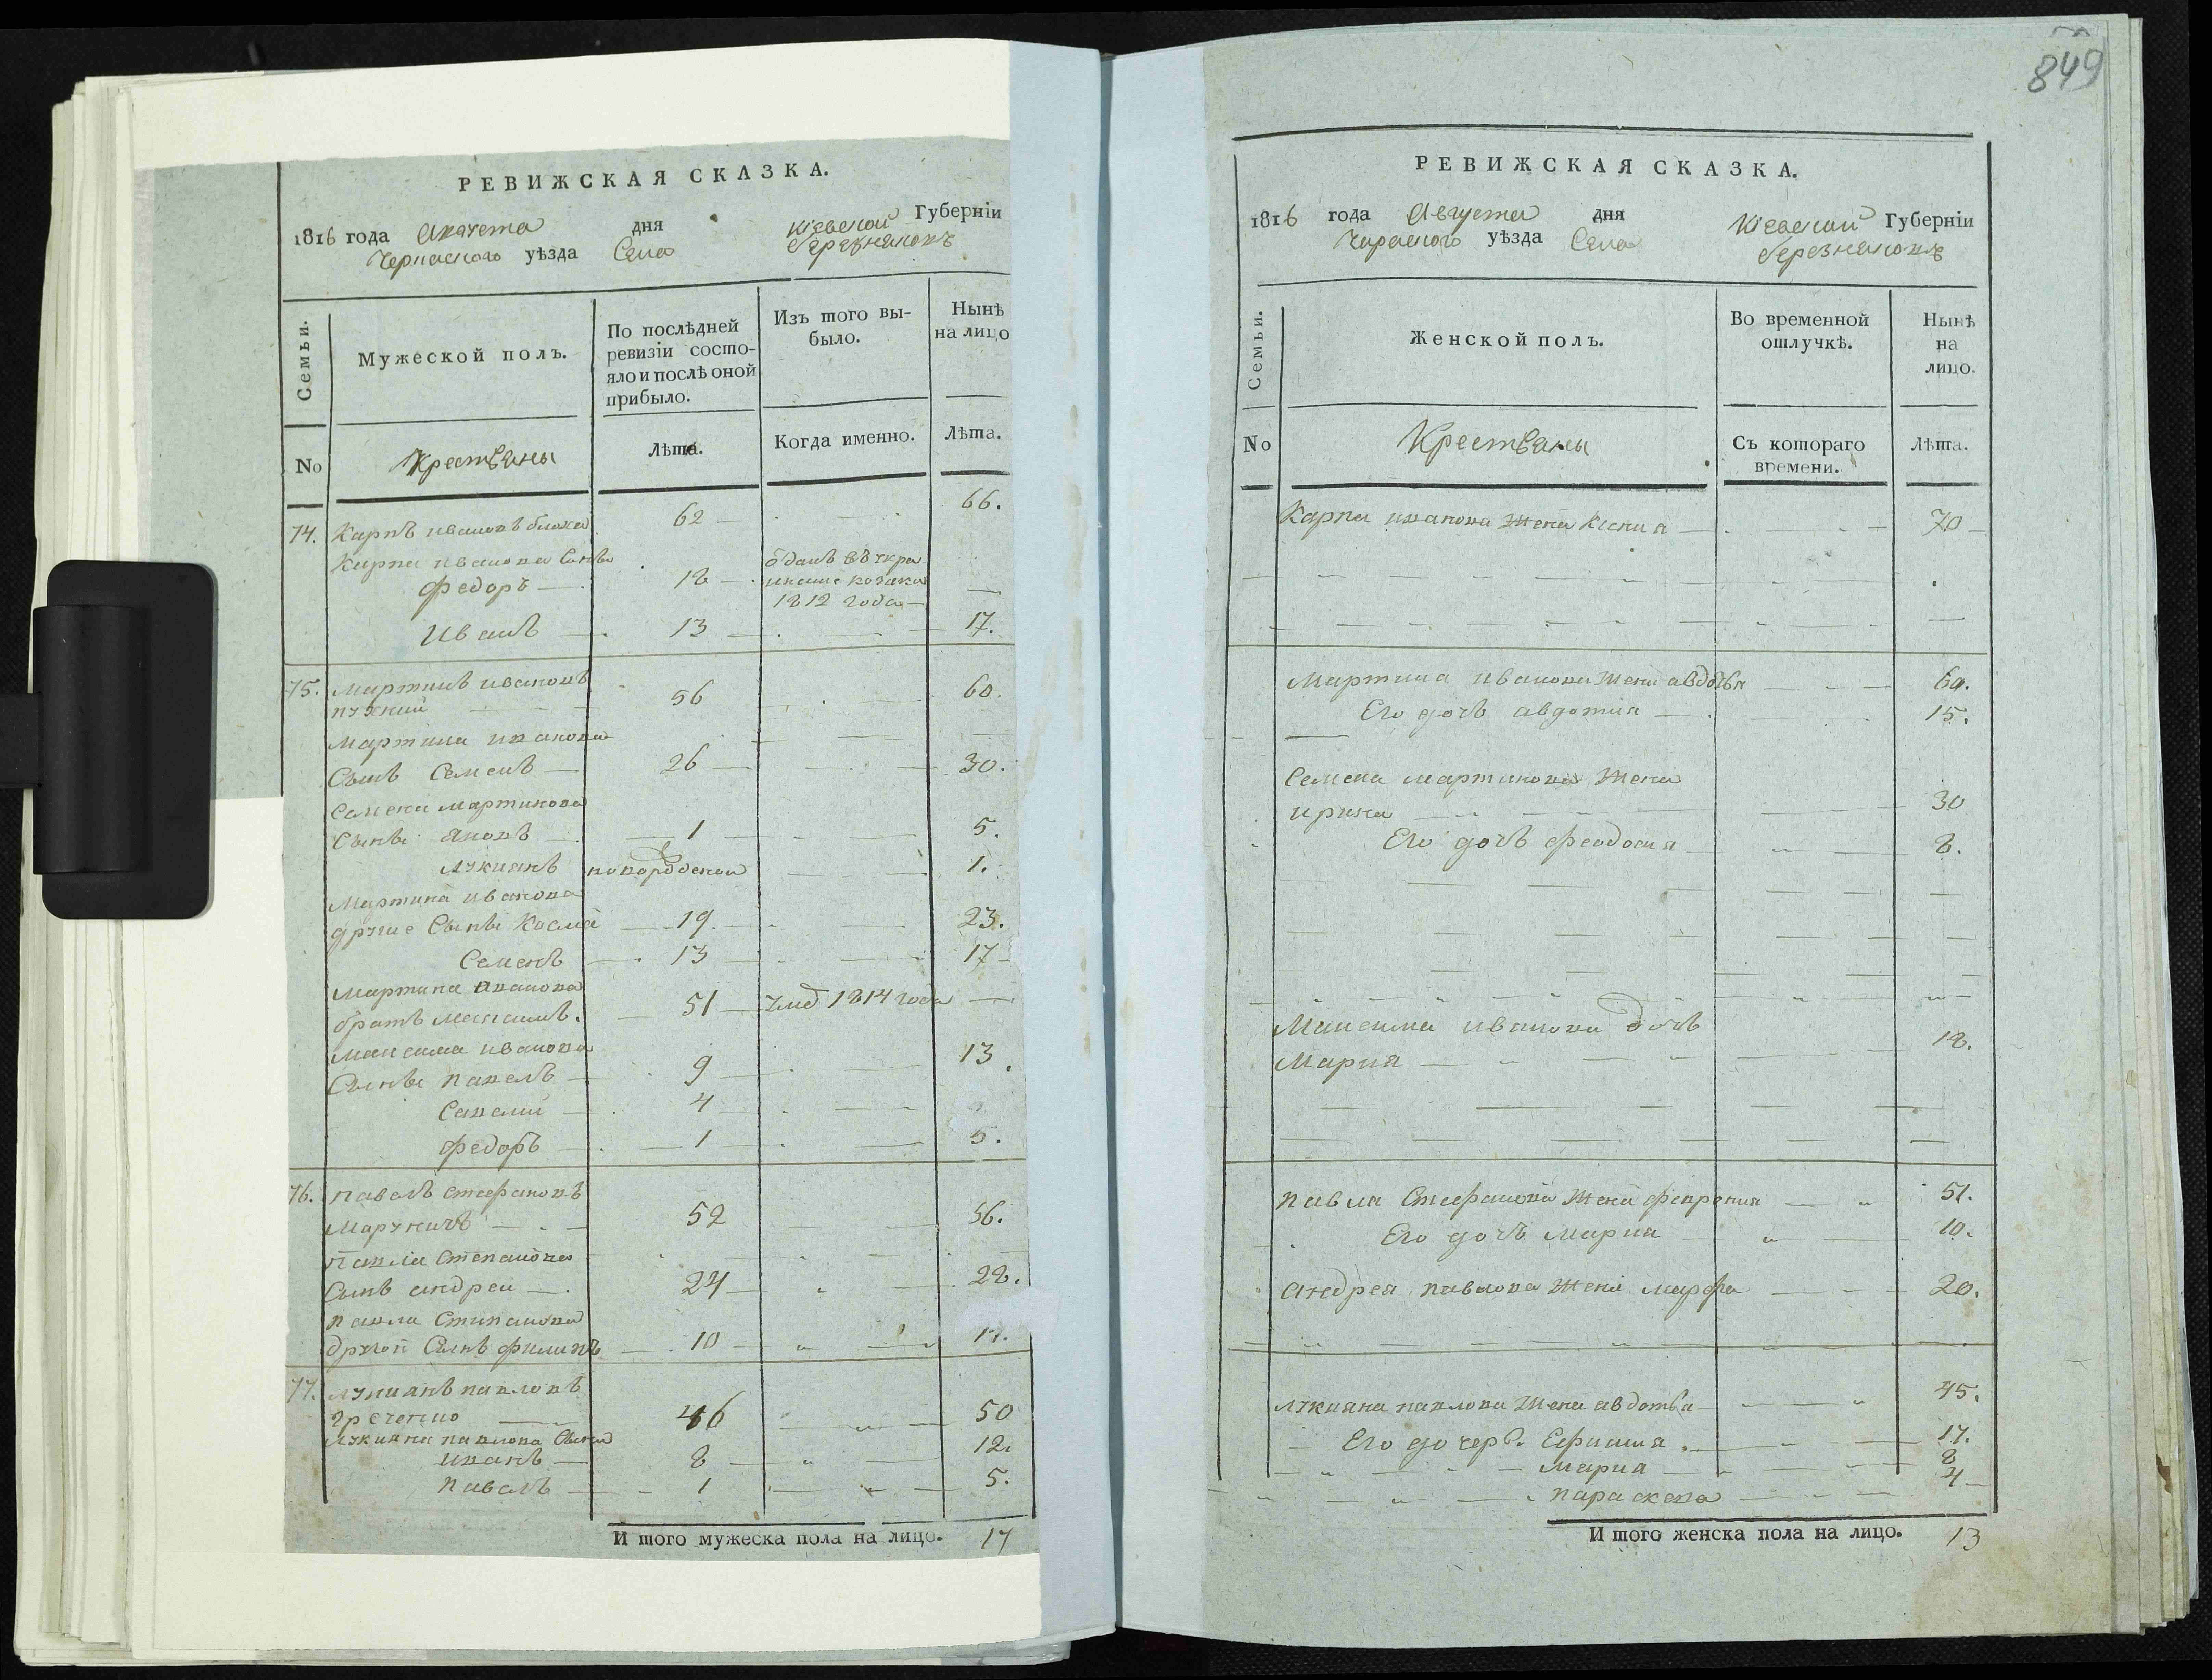 849
РЕВИЖСКАЯ СКАЗКА.
1816 года Августа дня Кіевской Губерніи
Черкаского уѣзда Села Березняковъ
Семьи.
Мужеской полъ.
По послѣдней ревизіи состояло и послѣ оной прибыло.
Изъ того выбыло.
Нынѣ на лицо
No
Крестьяны
Лѣта.
Когда именно.
Лѣта.
74. Карпъ ивановъ блоха 62 66.
Карпа иванова Сынъ
Федоръ 18 оданъ въ укра инские козаки 1812 года
Иванъ 13 17.
75. Мартинъ ивановъ
56 60.
Мартина иванова
Сынъ Семенъ 26 30.
Семена Мартинова
Сынъ Яковъ 1 5.
Лукиянъ новорожденой 1.
Мартина иванова
другие Сынъ Косма 19 23.
Семенъ 13 17
Мартина иванова
братъ Максимъ. 51 умер 1814 года
Максима иванова
Сынъ павелъ 9 13.
Савелий 4
Федоръ 1 5.
76. павелъ Стефановъ
Маруничъ 52 56.
павла Степанова
Сынъ андрей 24 28.
павла Стипанова
другой Сынъ филипъ 10
77. лукиянъ павловъ
гречено 46 50
лукияна павлова Сыни
иванъ 8 12.
павелъ 1 5.
И того мужеска пола на лицо. 17
РЕВИЖСКАЯ СКАЗКА.
1816 года Августа дня Кіевской Губерніи
Чаркаского уѣзда Села Березняковъ
Семьи.
Женской полъ.
Во временной отлучкѣ.
Нынѣ на лицо.
No
Крестьяны
Съ котораго времени.
Лѣта.
Карпа иванова Жена Ксения 70
Мартина иванова Жена авдотья 60.
Его дочь авдотия 15.
Семена мартинова Жена
ирина 30
Его дочь феодосия 8.
Максима иванова дочь
Мария 18.
павла Стефанова Жена феврония 51.
Его дочь мария 10.
андрея павлова Жена марфа 20.
лукияна павлова Жена авдотья 45.
Его дочерь. Ефимия. 17.
Мария 8
параскева 4
И того женска пола на лицо. 13